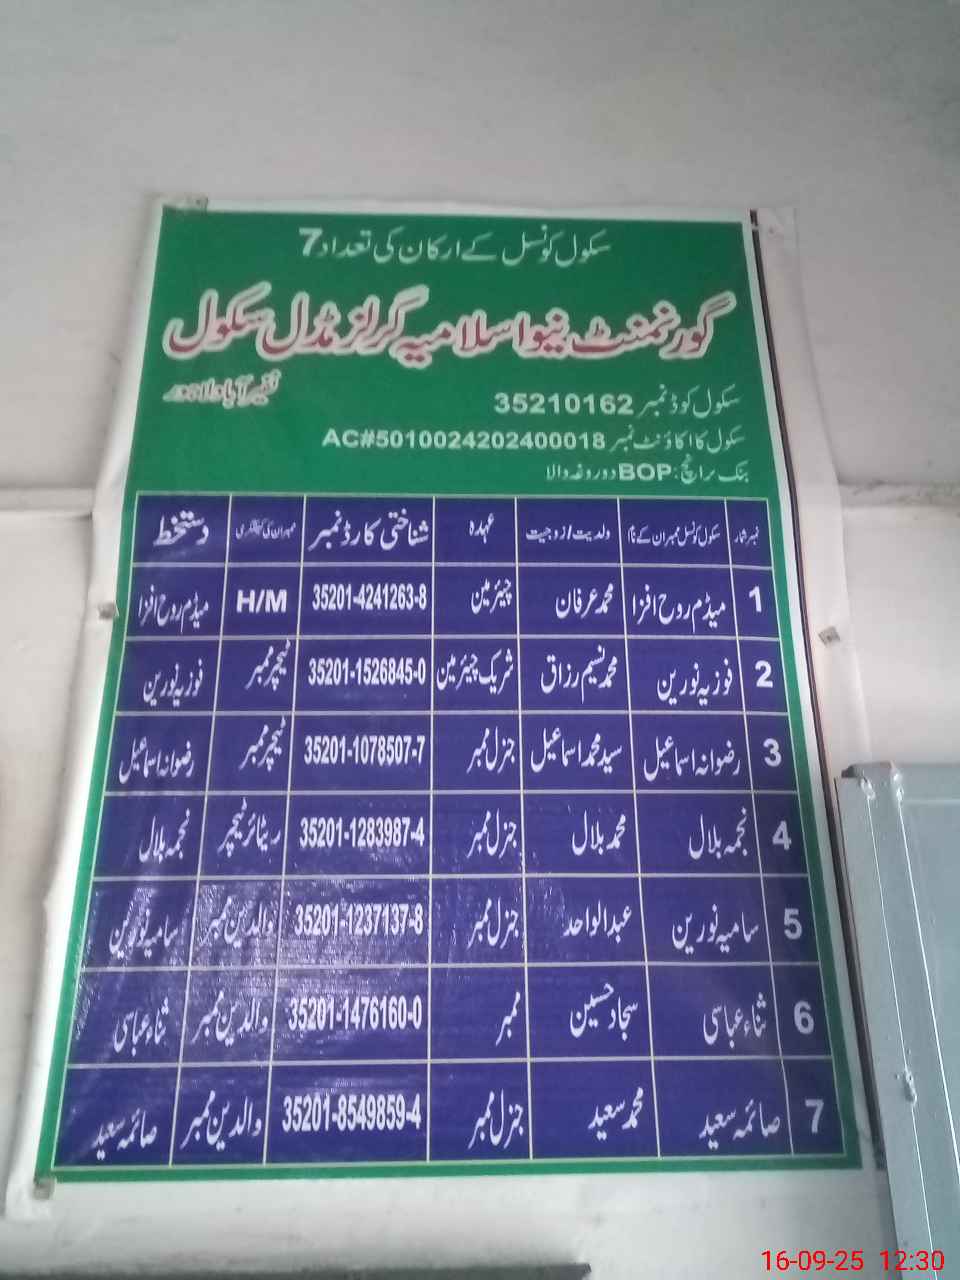 سکول کونسل کے ارکان کی تعداد 7
گورنمنٹ نیو اسلامیہ گرلز مڈل سکول
نصیر آباد لاہور
سکول کوڈ نمبر 35210162
سکول کا اکاؤنٹ نمبر AC#5010024202400018
بنک برانچ: BOP دوروغہ والا
نمبر شمار سکول کونسل ممبران کے نام ولدیت/زوجیت عہدہ شناختی کارڈ نمبر ممبران کی کیٹگری دستخط
1 میڈم روح افزا محمد عرفان چیئرمین 35201-4241263-8 H/M میڈم روح افزا
2 فوزیہ نورین محمد نسیم رزاق شریک چیئرمین 35201-1526845-0 ٹیچر ممبر فوزیہ نورین
3 رضوانہ اسماعیل سید محمد اسماعیل جنرل ممبر 35201-1078507-7 ٹیچر ممبر رضوانہ اسماعیل
4 نجمہ بلال محمد بلال جنرل ممبر 35201-1283987-4 ریٹائر ٹیچر نجمہ بلال
5 سامیہ نورین عبدالواحد جنرل ممبر 35201-1237137-8 والدین ممبر سامیہ نورین
6 ثناء عباسی سجاد حسین ممبر 35201-1476160-0 والدین ممبر ثناء عباسی
7 صائمہ سعید محمد سعید جنرل ممبر 35201-8549859-4 والدین ممبر صائمہ سعید
16-09-25 12:30